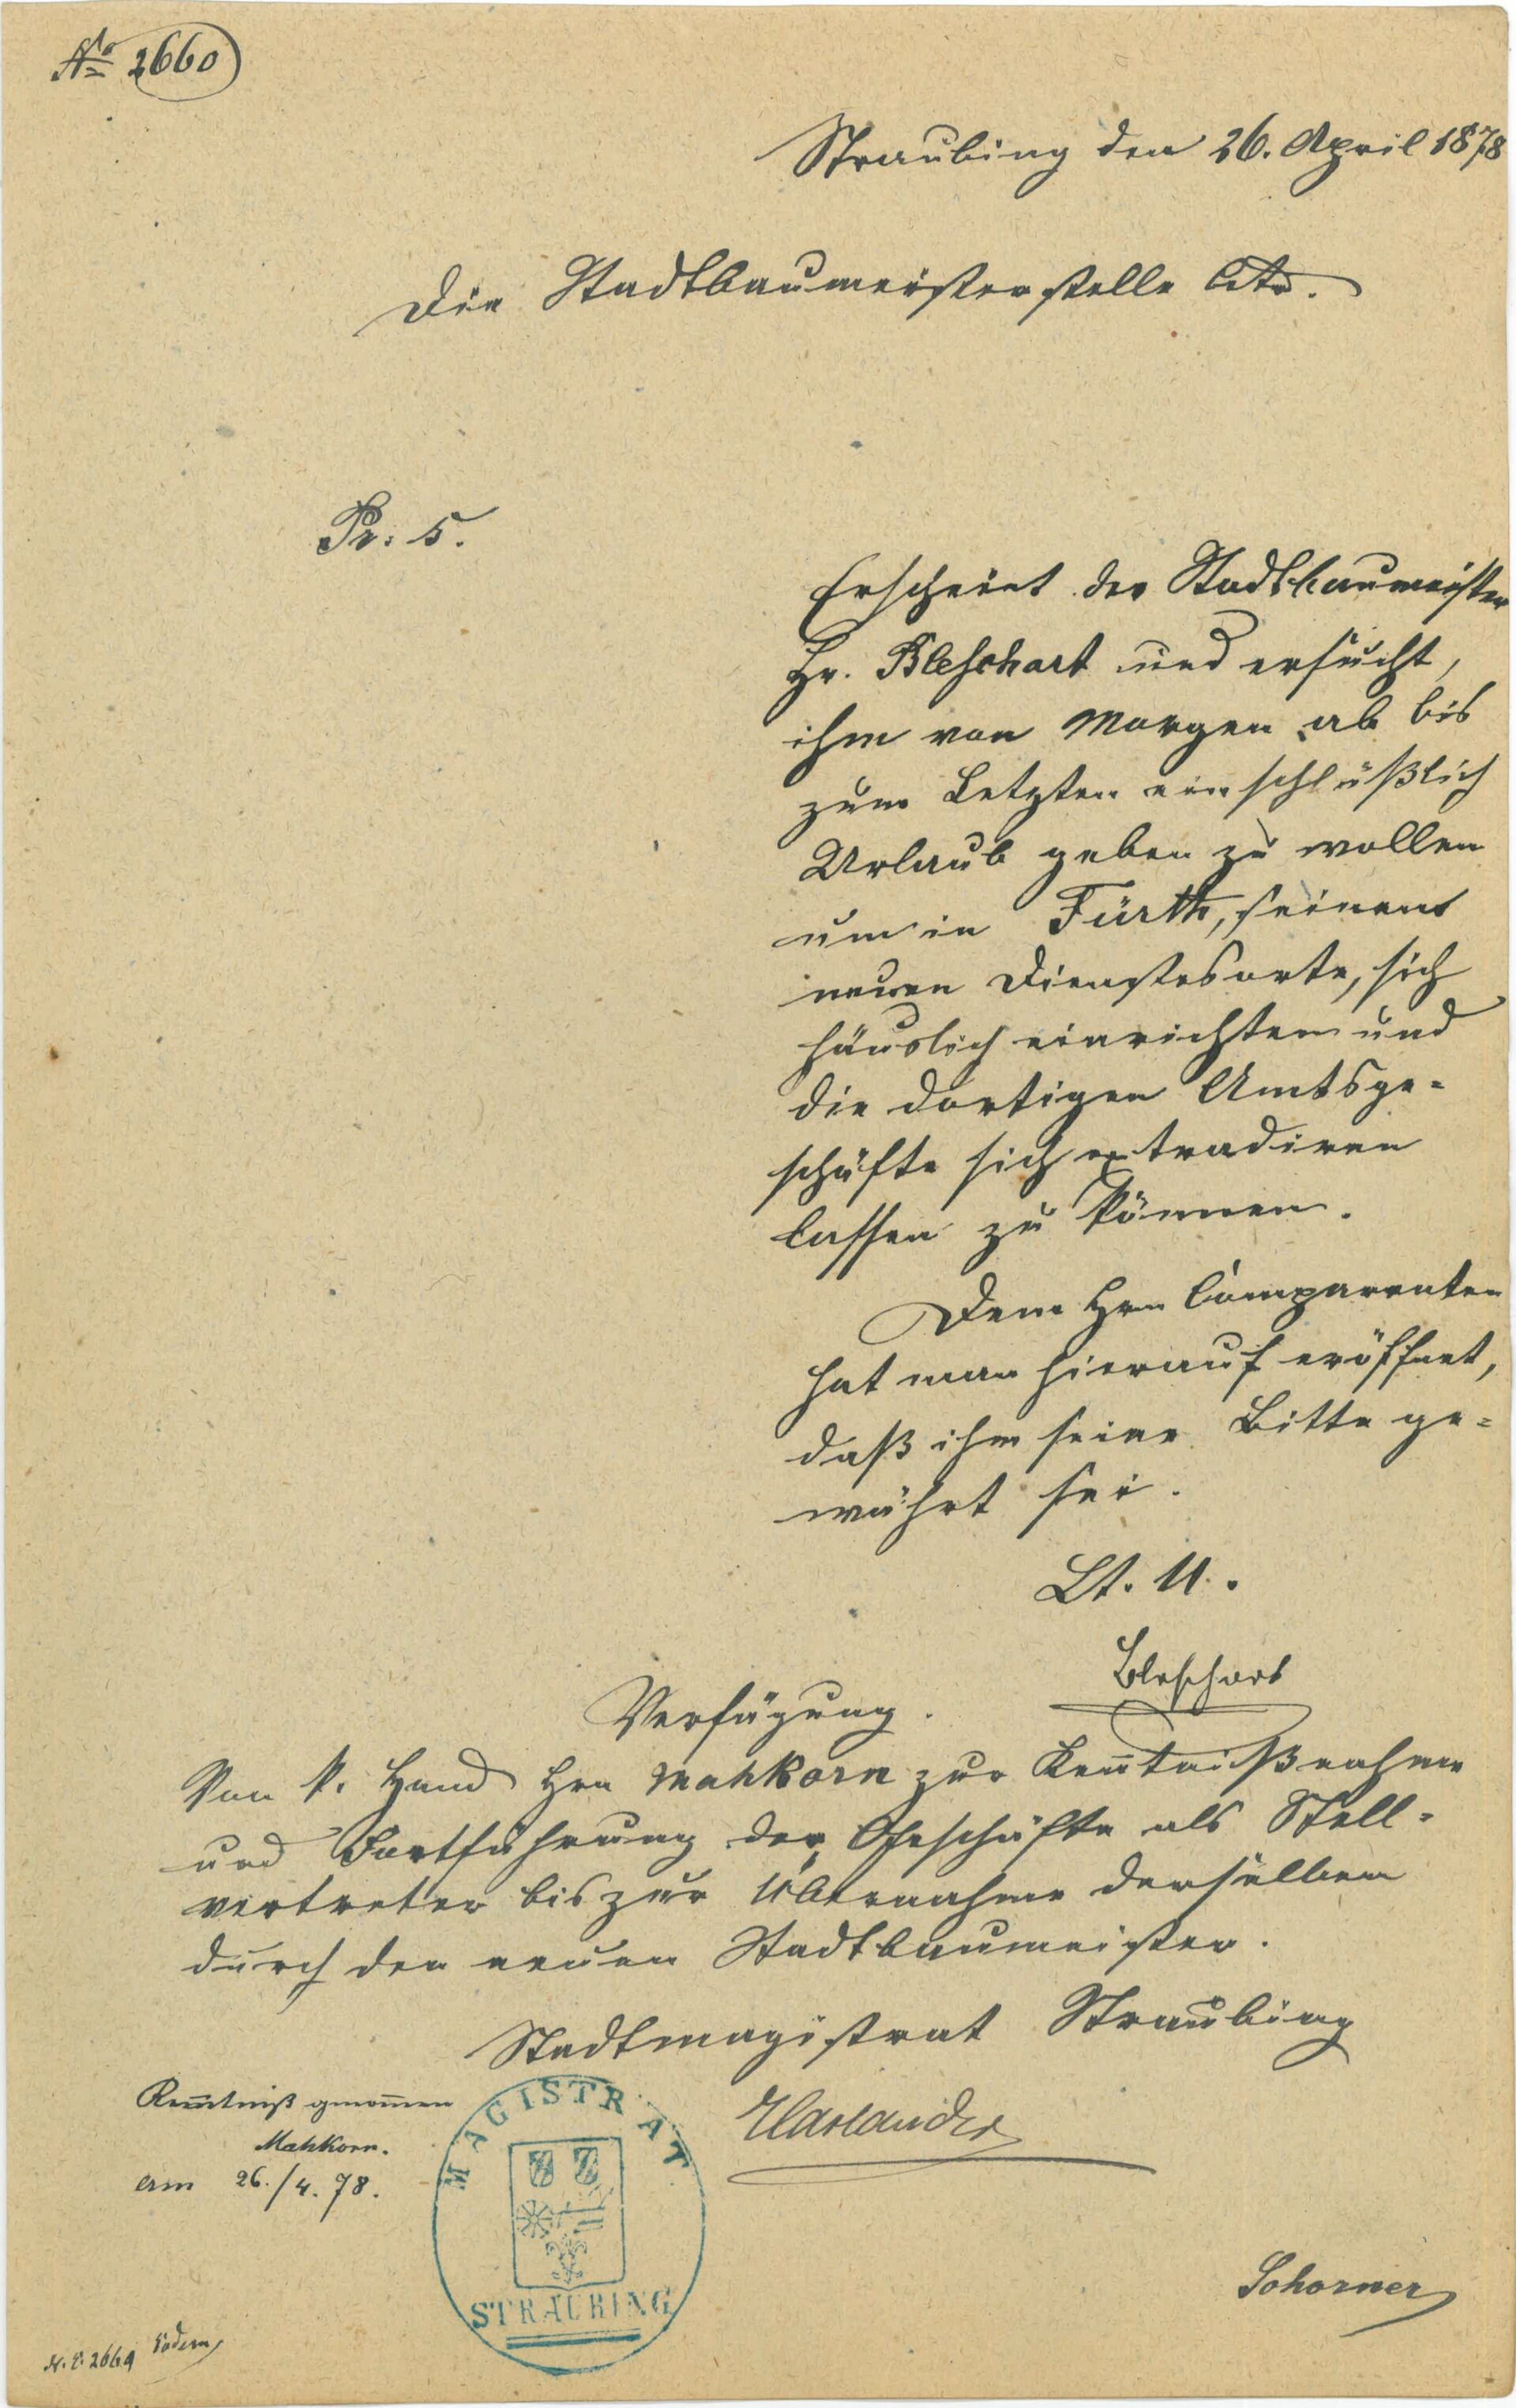 No 2660
Straubing den 26. April 1878
Die Stadtbaumeisterstelle btr.
Pr: 5.
Erscheint der Stadtbaumeister
Hr. Bleschart und ersucht,
ihm von Morgen ab bis
zum Letzten einschlüßlich
Urlaub geben zu wollen
um in Fürth, seinem
neuen Dienstesorte, sich
häuslich einrichten und
die dortigen Amtsge-
schäfte sich extradiren
lassen zu können.
Dem Hrn Comparenten
hat man hierauf eröffnet,
daß ihm seine Bitte ge-
währt sei.
Lt. U.
Bleschart
Verfügung.
Von k. Hand Hrn Mahkorn zur Kenntnißnahme
und Fortführung der Geschäfte als Stell-
vertreter bis zur Übernahme derselben
durch den neuen Stadtbaumeister.
Stadtmagistrat Straubing
Kenntniß genommen
Mahkorn.
am 26./4. 78.
MAGISTRAT
STRAUBING
Harlander
Schorner
N. E. 2664